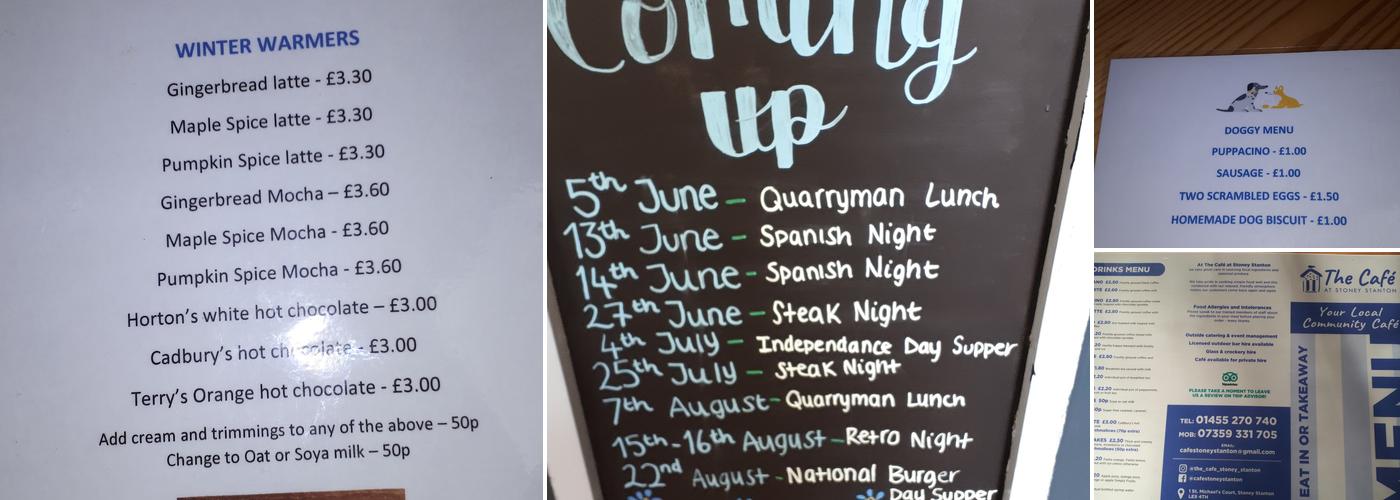 WINTER WARMERS
Gingerbread latte - £3.30
Maple Spice latte - £3.30
Pumpkin Spice latte - £3.30
Gingerbread Mocha – £3.60
Maple Spice Mocha - £3.60
Pumpkin Spice Mocha - £3.60
Horton's white hot chocolate – £3.00
Cadbury's hot chocolate - £3.00
Terry's Orange hot chocolate - £3.00
Add cream and trimmings to any of the above – 50p
Change to Oat or Soya milk – 50p
Coming
up
5th June – Quarryman Lunch
13th June - Spanish Night
14th June - Spanish Night
27th June - Steak Night
4th July - Independance Day Supper
25th July - Steak Night
7th August - Quarryman Lunch
15th-16th August - Retro Night
22nd August - National Burger
Day Supper
DOGGY MENU
PUPPACINO - £1.00
SAUSAGE - £1.00
TWO SCRAMBLED EGGS - £1.50
HOMEMADE DOG BISCUIT - £1.00
DRINKS MENU
At The Café at Stoney Stanton
Food Allergies and Intolerances
Outside catering & event management
Licensed outdoor bar hire available
Glass & crockery hire
Café available for private hire
Tripadvisor
PLEASE TAKE A MOMENT TO LEAVE
US A REVIEW ON TRIP ADVISOR!
TEL: 01455 270 740
MOB: 07359 331 705
EMAIL:
cafestoneystanton@gmail.com
@the_cafe_stoney_stanton
@cafestoneystanton
1 St. Michael's Court, Stoney Stanton
LE9 4TH
The Café
AT STONEY STANTON
Your Local
Community Café
EAT IN OR TAKEAWAY
MENU